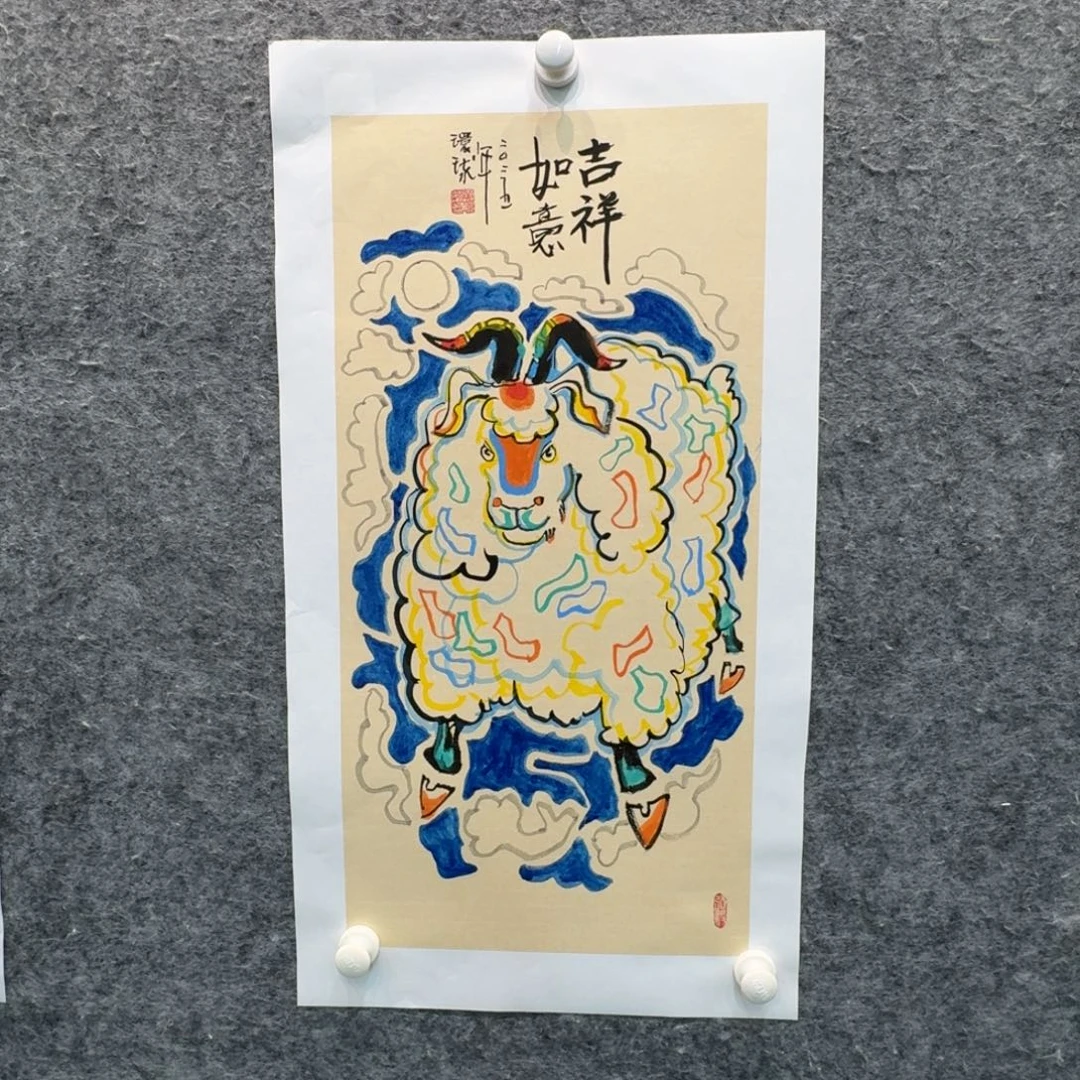 吉祥
如意
二〇二五
年
環球